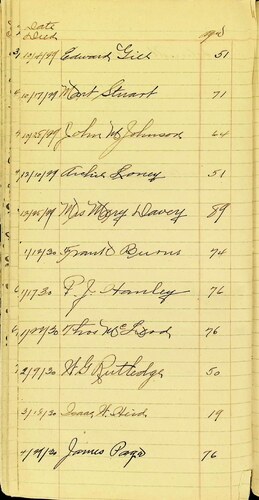 Date
Died aged
10/4/29 Edward Gill 51
10/17/29 Mart Stuart 71
10/25/29 John M Johnson 64
12/10/29 Archie Loney 51
12/25/29 Mrs Mary Davey 89
1/12/30 Frank Burns 74
1/17/30 P J Hanley 76
Thos McLeod 76
2/7/30 H G Rutledge 50
2/13/30 Isaac W. 19
James Page 76